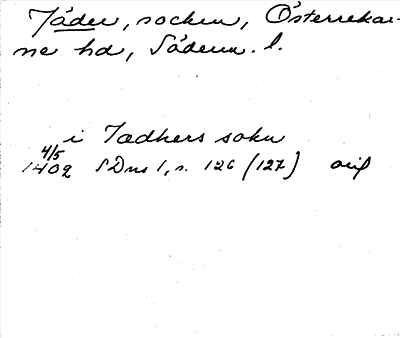 Jäder, socken, Österrekar-
ne hd, Söderm. l.
i Jædhers sokn
4/5
1402 SDns 1, s. 126 (127) orif